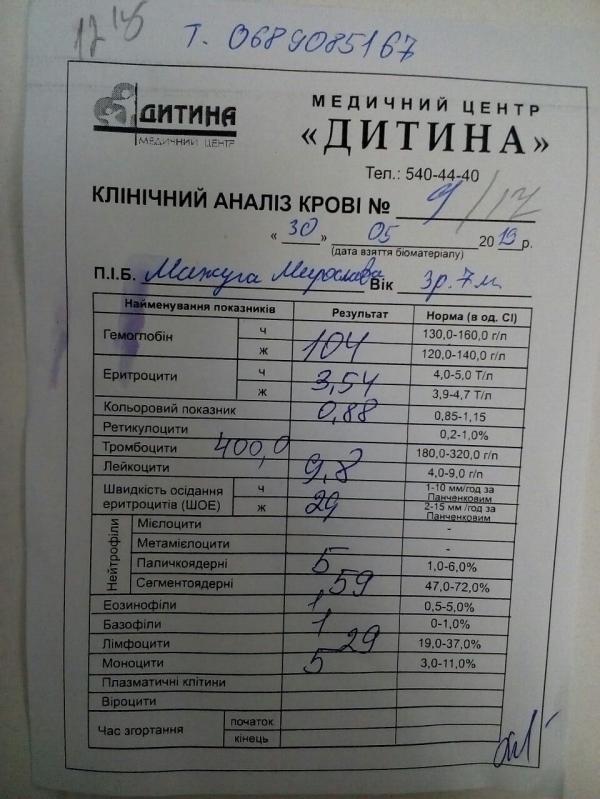 12 18
т. 0689085167
ДИТИНА
МЕДИЧНИЙ ЦЕНТР
МЕДИЧНИЙ ЦЕНТР
«ДИТИНА»
Тел.: 540-44-40
КЛІНІЧНИЙ АНАЛІЗ КРОВІ № 9/17
« 30 » 05 2019 р.
(дата взяття біоматеріалу)
П.І.Б. Мажуга Мирослава Вік 3р. 7м
Найменування показників Результат Норма (в од. СІ)
Гемоглобін ч 130,0-160,0 г/л
ж 104 120,0-140,0 г/л
Еритроцити ч 4,0-5,0 Т/л
ж 3,54 3,9-4,7 Т/л
Кольоровий показник 0,88 0,85-1,15
Ретикулоцити 0,2-1,0%
Тромбоцити 400,0 180,0-320,0 г/л
Лейкоцити 9,8 4,0-9,0 Г/л
Швидкість осідання еритроцитів (ШОЕ) ч 1-10 мм/год за Панченковим
ж 29 2-15 мм /год за Панченковим
Нейтрофіли
Мієлоцити -
Метамієлоцити -
Паличкоядерні 5 1,0-6,0%
Сегментоядерні 59 47,0-72,0%
Еозинофіли 1 0,5-5,0%
Базофіли 1 0-1,0%
Лімфоцити 29 19,0-37,0%
Моноцити 5 3,0-11,0%
Плазматичні клітини
Віроцити
Час згортання початок
кінець